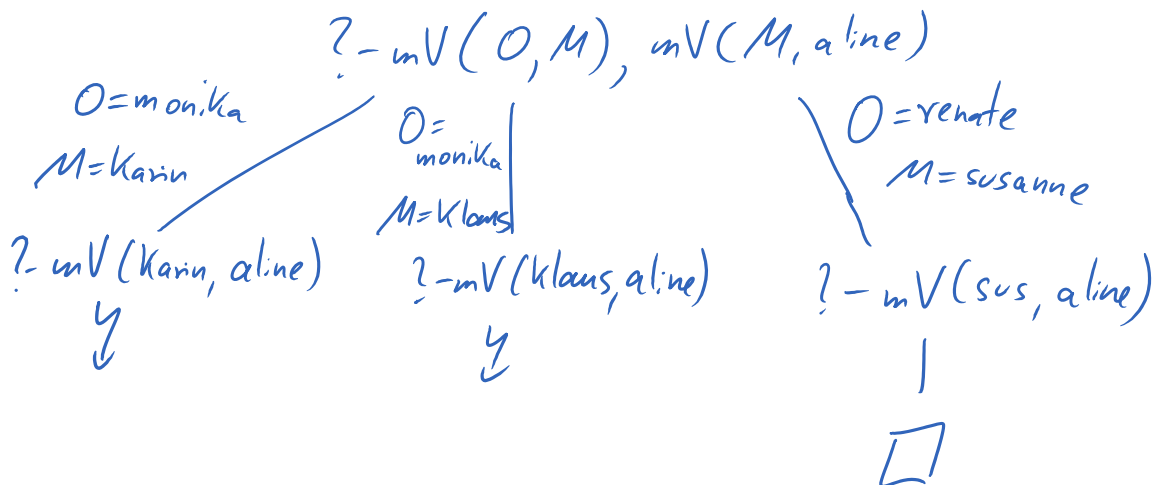 ?- mV(O,M), mV(M, aline)
O=monika
M=Karin
O=
monika
M=Klaus
O=renate
M=susanne
?- mV(Karin, aline)
?-mV(klaus,aline)
?-mV(sus, aline)